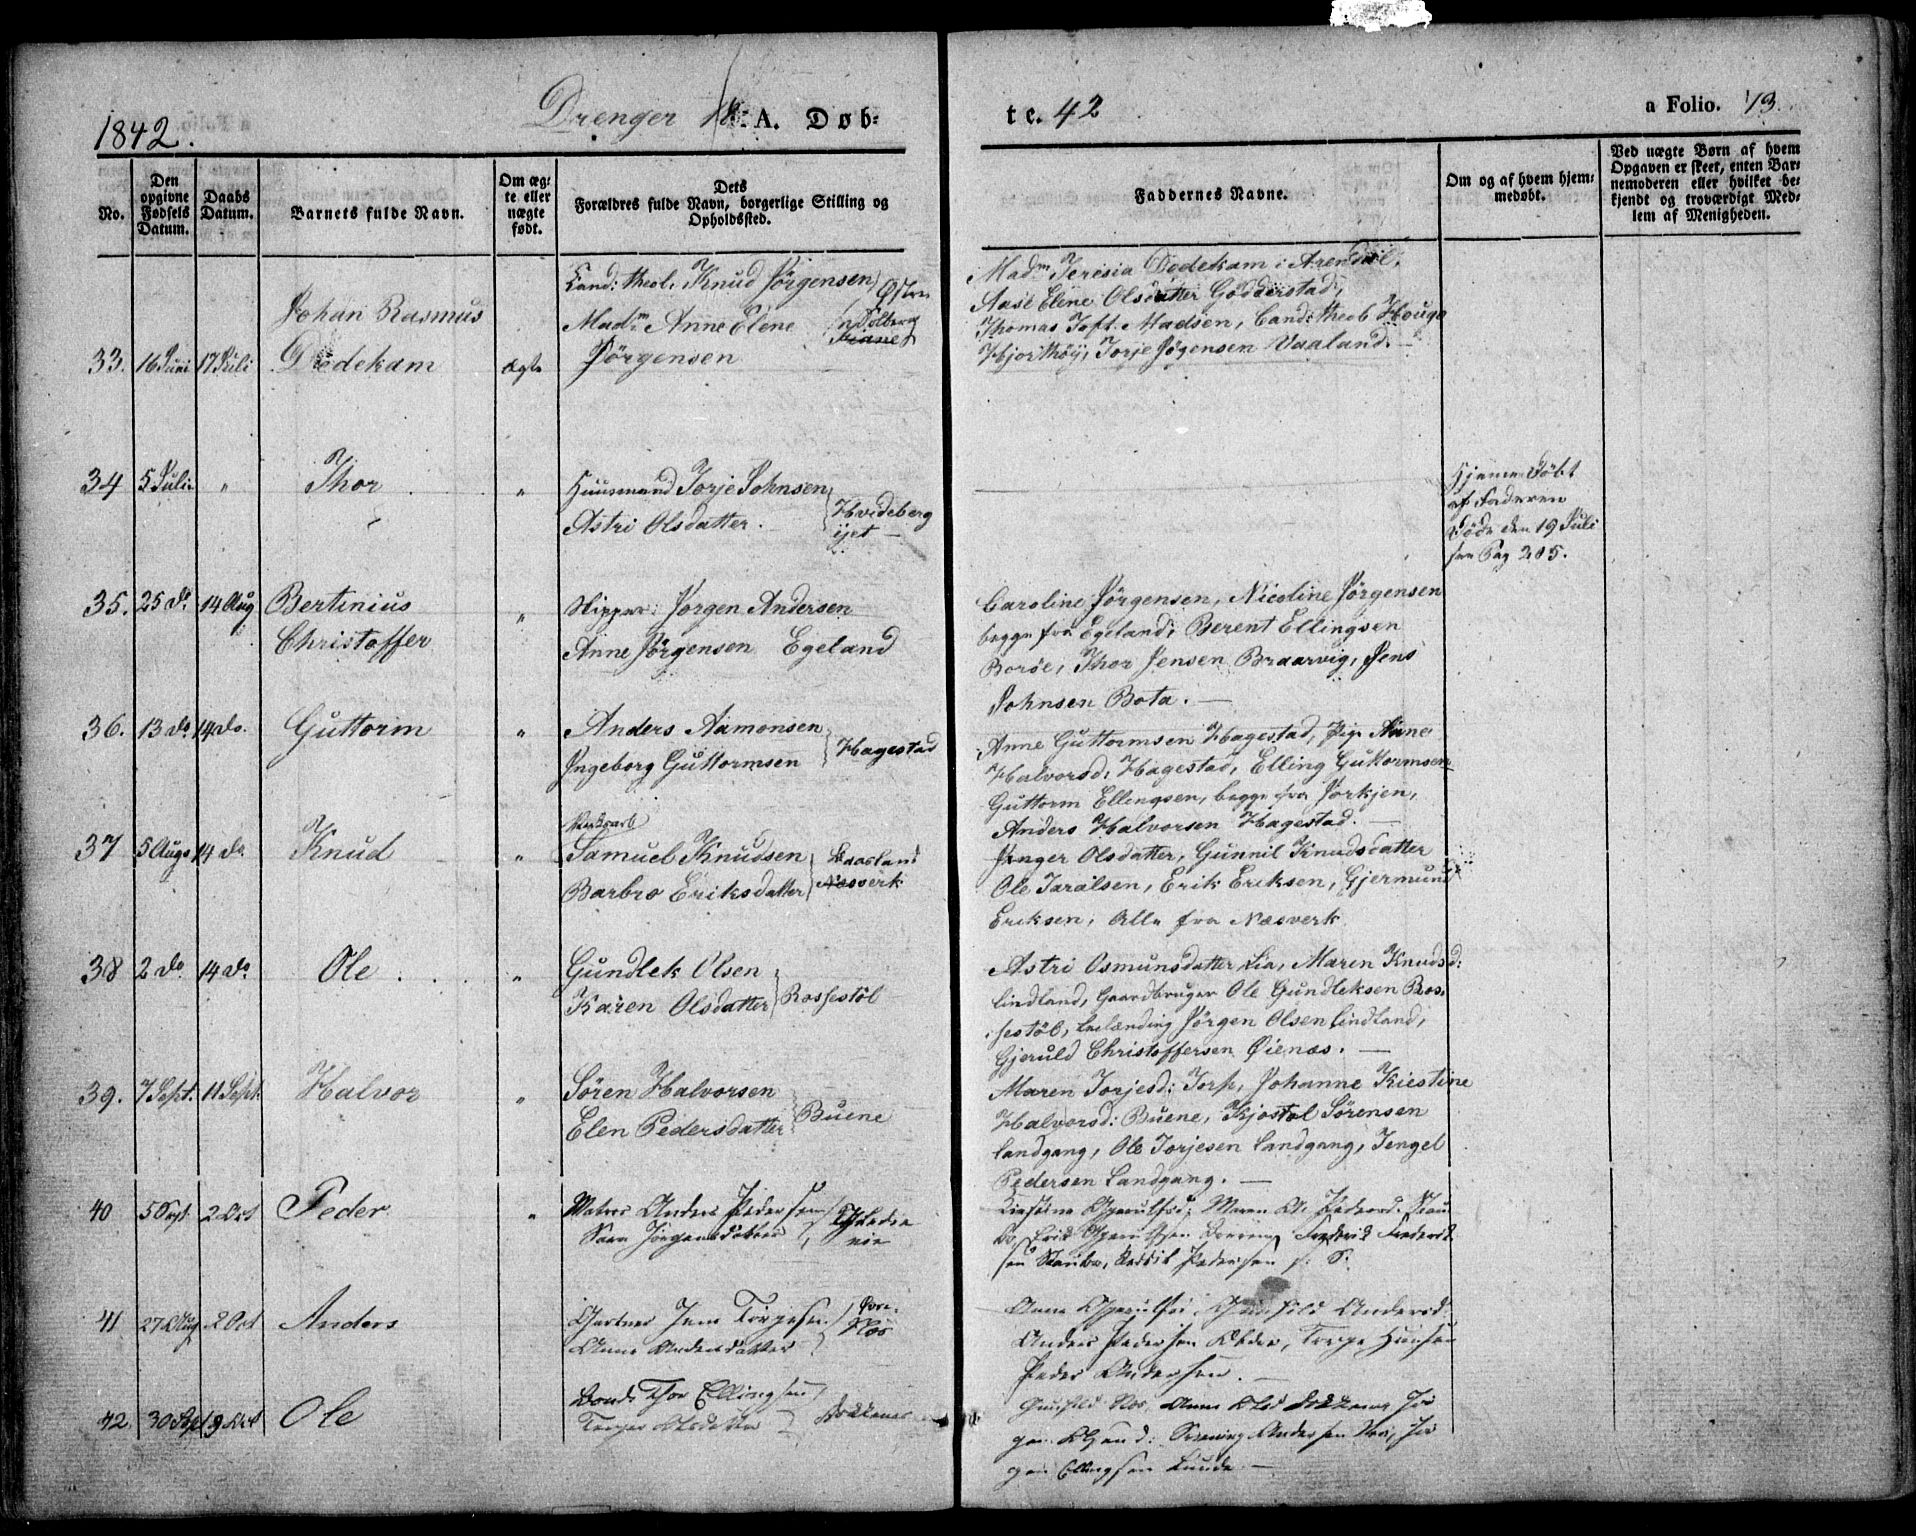 1842.
Drenger 18 A. Døb-
te. 42
a Folio. 73.
No.
Den opgivne Fødsels Datum.
Daabs Datum.
Barnets fulde Navn.
Om ægte eller nægte født.
Dets Forældres fulde Navn, borgerlige Stilling og Opholdssted.
Faddernes Navne.
Om og af hvem hjemmedøbt.
Ved nægte Børn af hvem Opgaven er skeet, enten Barnemoderen eller hvilket bekjendt og troværdigt Medlem af Menigheden.
33. 16 Juni 17 Juli Johan Rasmus
Dedekam ægte
Cand: theol. Knud Jørgensen
Madm Anne Elene
Jørgensen
Østre
Solberg
Madm Teresia Dedekam i Arendal,
Aase Elene Olsdatter Godderstad,
Thomas Toft Madsen, Cand: theol Houge
Hjorthöy, Torje Jørgensen Vaaland. —
34 5 Juli " Thor "
Huusmand Torje Johnsen
Astri Olsdatter.
Hvideberg
ijet —
Hjemmedöbt
af Faderen
Döde den 19 Juli
see Pag 205.
35. 25 do 14 Aug Bertinius
Christoffer "
Skipper: Jørgen Andersen
Anne Jørgensen Egeland
Caroline Jørgensen, Nicoline Jørgensen
begge fra Egeland, Berent Ellingsen
Boröe, Thor Jensen Braarvig, Jens
Johnsen Bota. —
36. 13 do 14 do. Guttorm "
Anders Aamonsen
Ingeborg Guttormsen
Hagestad
Anne Guttormsen Hagestad, Pige Anne
Halvorsd: Hagestad, Elling Guttormsen
Guttorm Ellingsen, begge fra Jorkjen,
Anders Halvorsen Hagestad. —
37 5 Aug 14 do. Knud "
Samuel Knudsen
Barbro Eriksdatter
Næsverk
Inger Olsdatter, Gunnil Knudsdatter
Ole Taralsen, Erik Eriksen, Gjermund
Eriksen, Alle fra Næsverk
38 2 do 14 do. Ole "
Gundlek Olsen
Karen Olsdatter
Rossestöl
Astri Osmunsdatter Lia, Maren Knudsd:
Lindland, Gaardbruger Ole Gundleksen Ros-
sestöl, Jørgen Olsen Lindland,
Gjeruld Christoffersen Öienæs. —
39. 7 Sept. 11 Sept. Halvor "
Sören Halvorsen
Elen Pedersdatter
Buene
Maren Torjesd: Torp, Johanne Kiestine
Halvorsd: Buene, Kjostol Sörensen
Landgang, Ole Torjesen Landgang, Tengel
Pedersen Landgang. —
40 5 Sept 2 Oct Peder "
Matros Anders Pedersen
Sara Jörgensdatter
Kirstine Gjerulfsd: Maren A. Pedersd.
Frederik Frederik
sen Pedersen
41 27 Aug 2 Oct Anders
Gartner Jens Torgesen
Anne Andersdatter
Øvre
Næs
Anne Gjerulfsd, Gunhild Andersd
Anders Pedersen Torge Hansen
Peder Andersen. —
42. 30 Sept 9 Oct Ole
Bonde Thor Ellingsen
Gunhild Næs, Anne
Andersen Næs, Jör
gen Ellingsen Lunde —